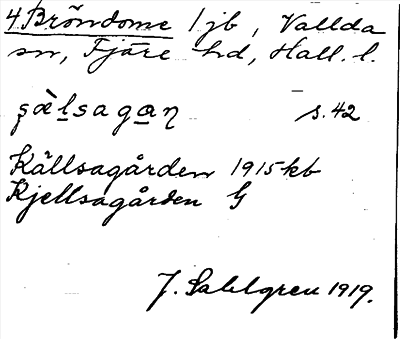 4. Bröndome 1 jb, Vallda
sn, Fjäre hd, Hall. l.
s. 42
Källsagården 1915 kb
Kjellsagården G
J. Sahlgren 1919.